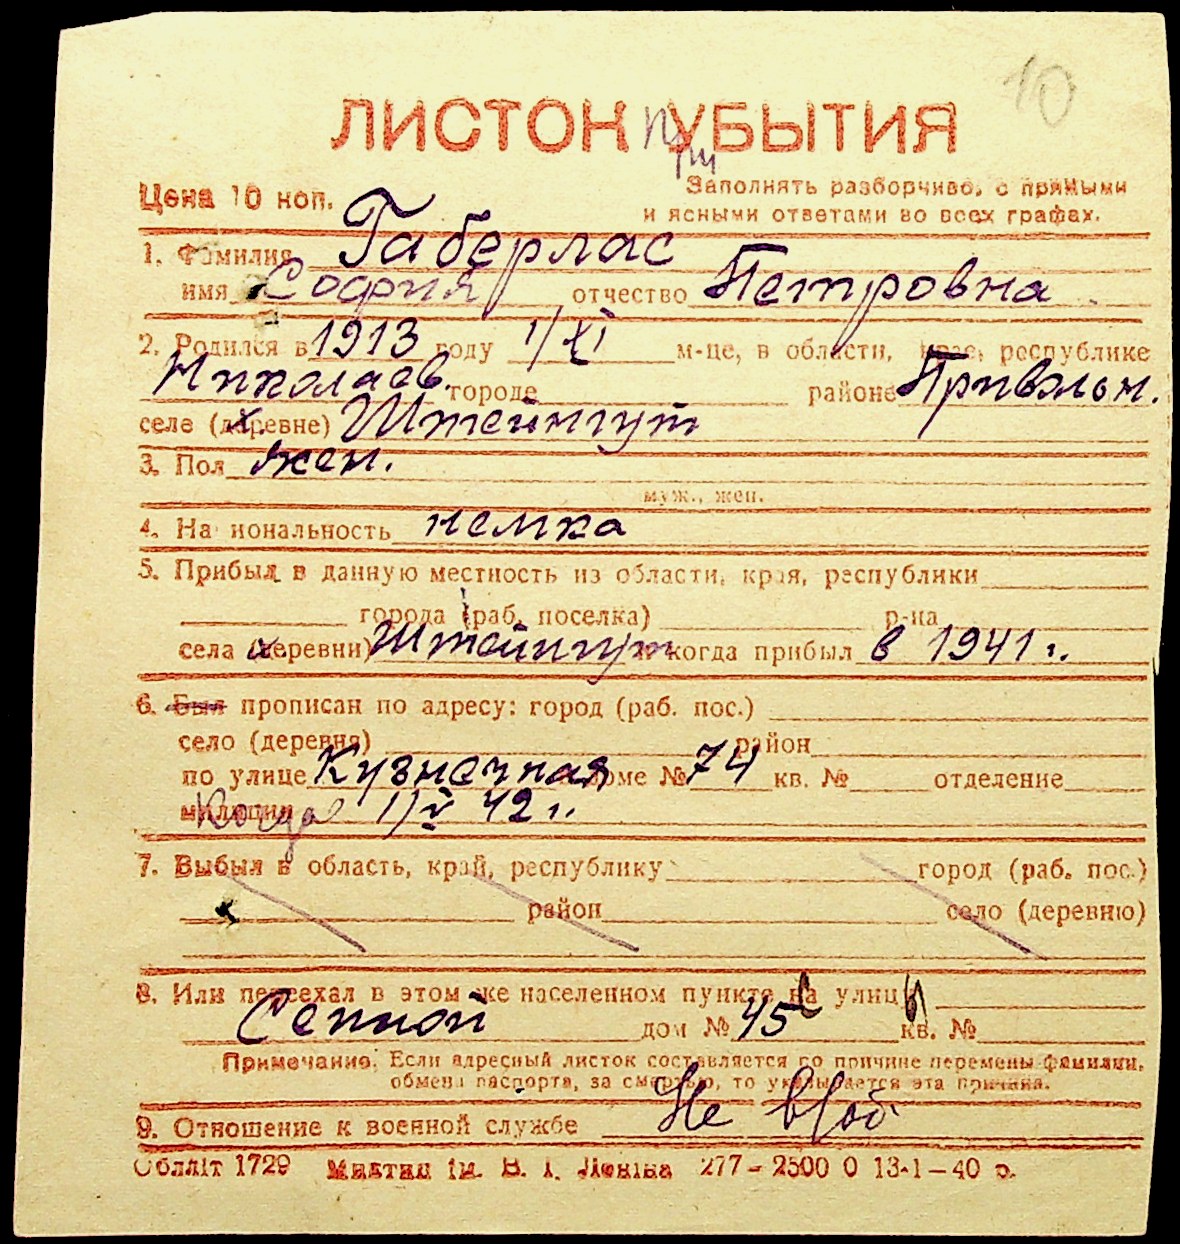 10
ЛИСТОК При УБЫТИЯ
Цена 10 коп. Заполнять разборчиво, с прямыми
и ясными ответами во всех графах.
1. Фамилия Габерлас
имя София отчество Петровна
2. Родился в 1913 году 1/XI м-це, в области, крае, республике
Николаев. городе районе Привольн.
селе (деревне) Штейнгут
3. Пол жен.
муж., жен.
4. Национальность немка
5. Прибыл в данную местность из области, края, республики
города (раб. поселка) р-на
села (деревни) Штейнгут и когда прибыл в 1941 г.
6. Был прописан по адресу: город (раб. пос.)
село (деревня) район
по улице Кузнечная доме № 74 кв. № отделение
милиции Когда 1/V 42 г.
7. Выбыл в область, край, республику город (раб. пос.)
район село (деревню)
8. Или переехал в этом же населенном пункте с улицы
Сенной дом № 45 кв. №
Примечание. Если адресный листок составляется по причине перемены фамилии,
обмена паспорта, за смертью, то указывается эта причина.
9. Отношение к военной службе Не в/об
Облліт 1729 Миктип ім. В. І. Леніна 277–2500 0 13-1–40 р.